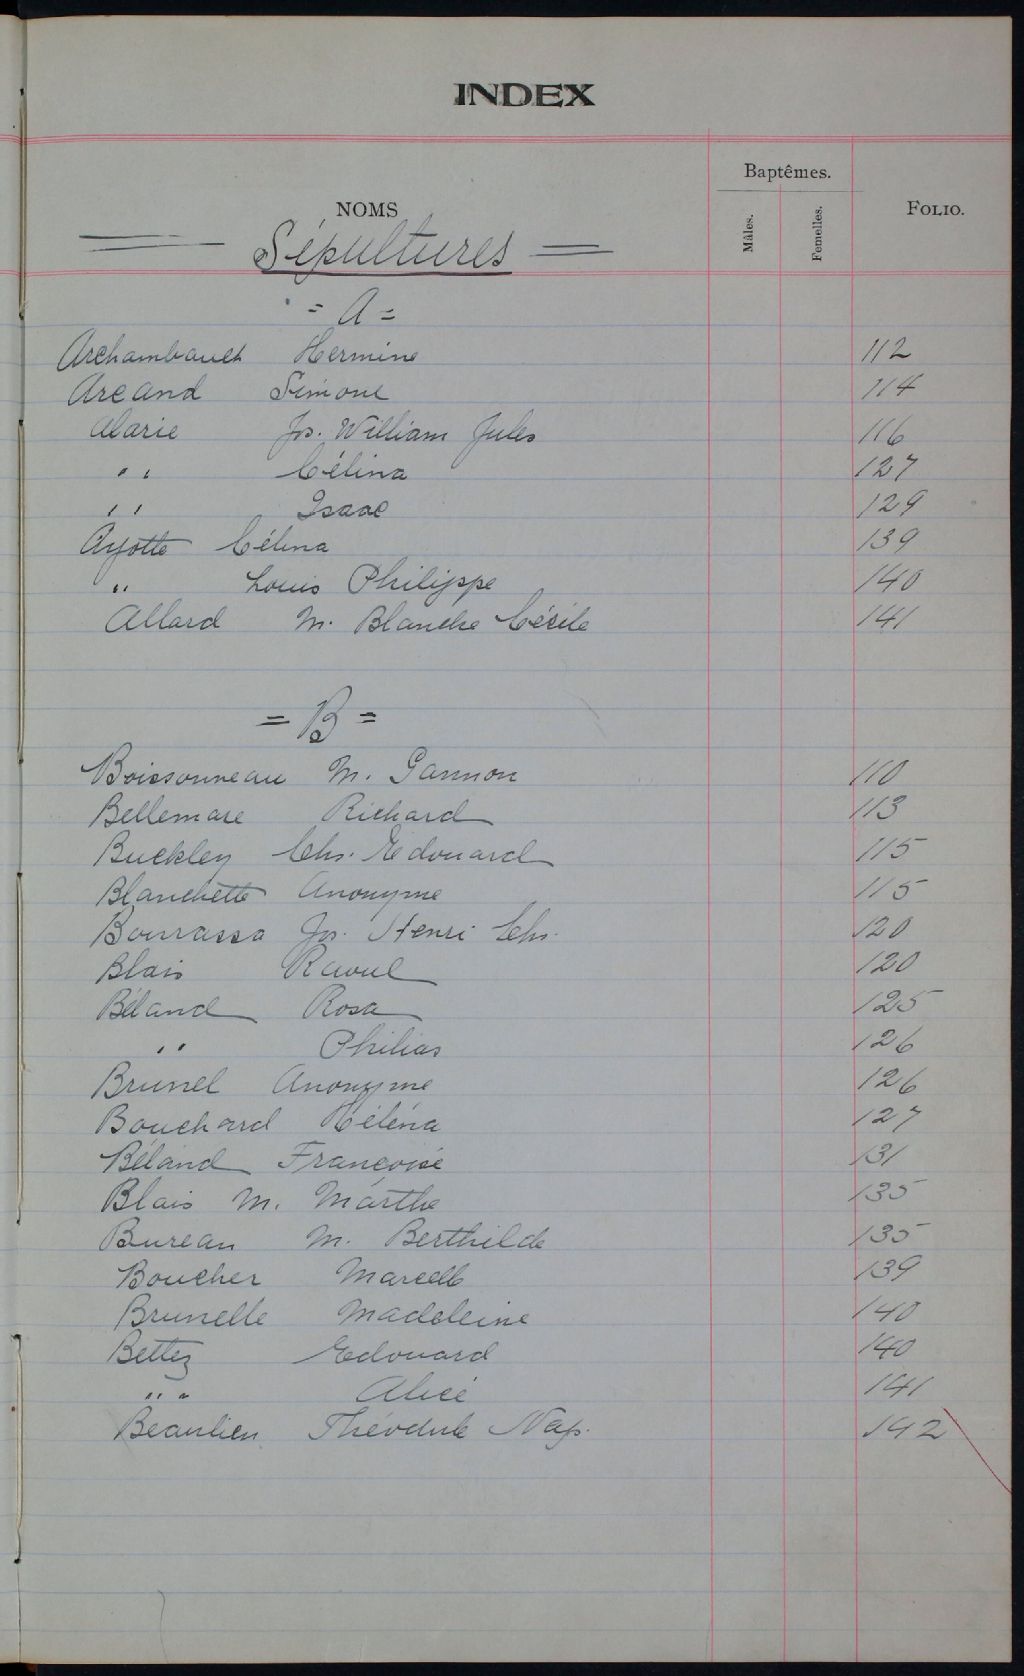 INDEX
Baptêmes.
NOMS
Mâles.
Femelles.
FOLIO.
Sépultures
= A =
Archambault Hermine 112
Arcand Simone 114
Alarie Js. William Jules 116
" " Célina 127
" " Isaac 129
Ayotte Célina 139
" Louis Philippe 140
Allard M. Blanche Cécile 141
= B =
Boissonneau M. Gannon 110
Bellemare Richard 113
Buckley Chs. Edouard 115
Blanchette Anonyme 115
Bourrassa Js. Henri Chs. 120
Blais Raoul 120
Béland Rosa 125
" " Philias 126
Brunel Anonyme 126
Bouchard Héléna 127
Béland Françoise 131
Blais M. Marthe 135
Bureau M. Berthilde 135
Boucher Marcelle 139
Brunelle Madeleine 140
Bettez Edouard 140
" " Alice 141
Beaulieu Théodule Nap. 142